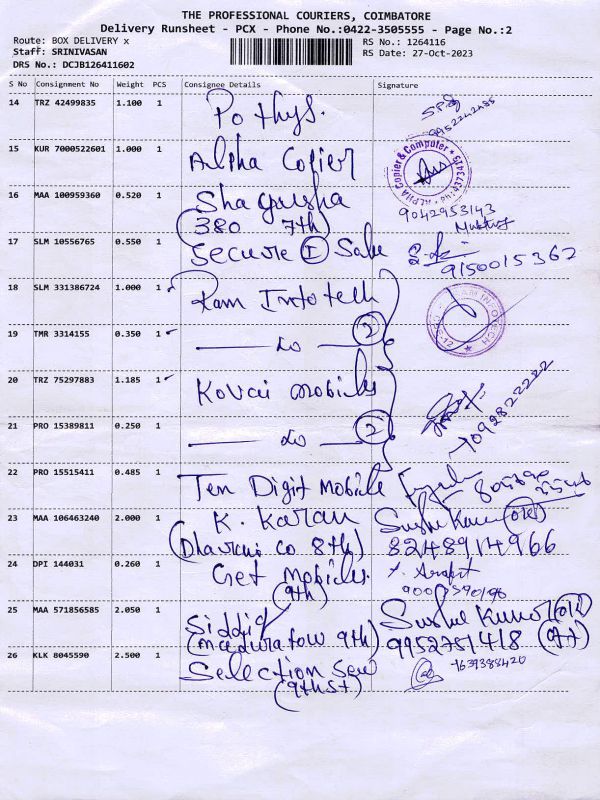 THE PROFESSIONAL COURIERS, COIMBATORE
Delivery Runsheet - PCX - Phone No.:0422-3505555 - Page No.:2
Route: BOX DELIVERY x
RS No.: 1264116
Staff: SRINIVASAN
RS Date: 27-Oct-2023
DRS No.: DCJB126411602
S No Consignment No Weight PCS Consignee Details Signature
14 TRZ 42499835 1.100 1 Pothys.
15 KUR 7000522601 1.000 1 Alpha Copier
ALPHA Copier & Computer
16 MAA 100959360 0.520 1 Shagusha
(380 7th) 9042953143
17 SLM 10556765 0.550 1 Secure I Safe
9150015362
18 SLM 331386724 1.000 1 Ram Infotech
RAM INFOTECH
19 TMR 3314155 0.350 1 Do 2
20 TRZ 75297883 1.185 1 Kovai mobiles
21 PRO 15389811 0.250 1 Do 2
22 PRO 15515411 0.485 1 Ten Digit Mobile
23 MAA 106463240 2.000 1 K. Karan
8th) 8248914966
24 DPI 144031 0.260 1 Get Mobiles.
(9th)
25 MAA 571856585 2.050 1 Siddiq Sushil Kumar
9th) 9952751418
26 KLK 8045590 2.500 1 Selection
(9th St)